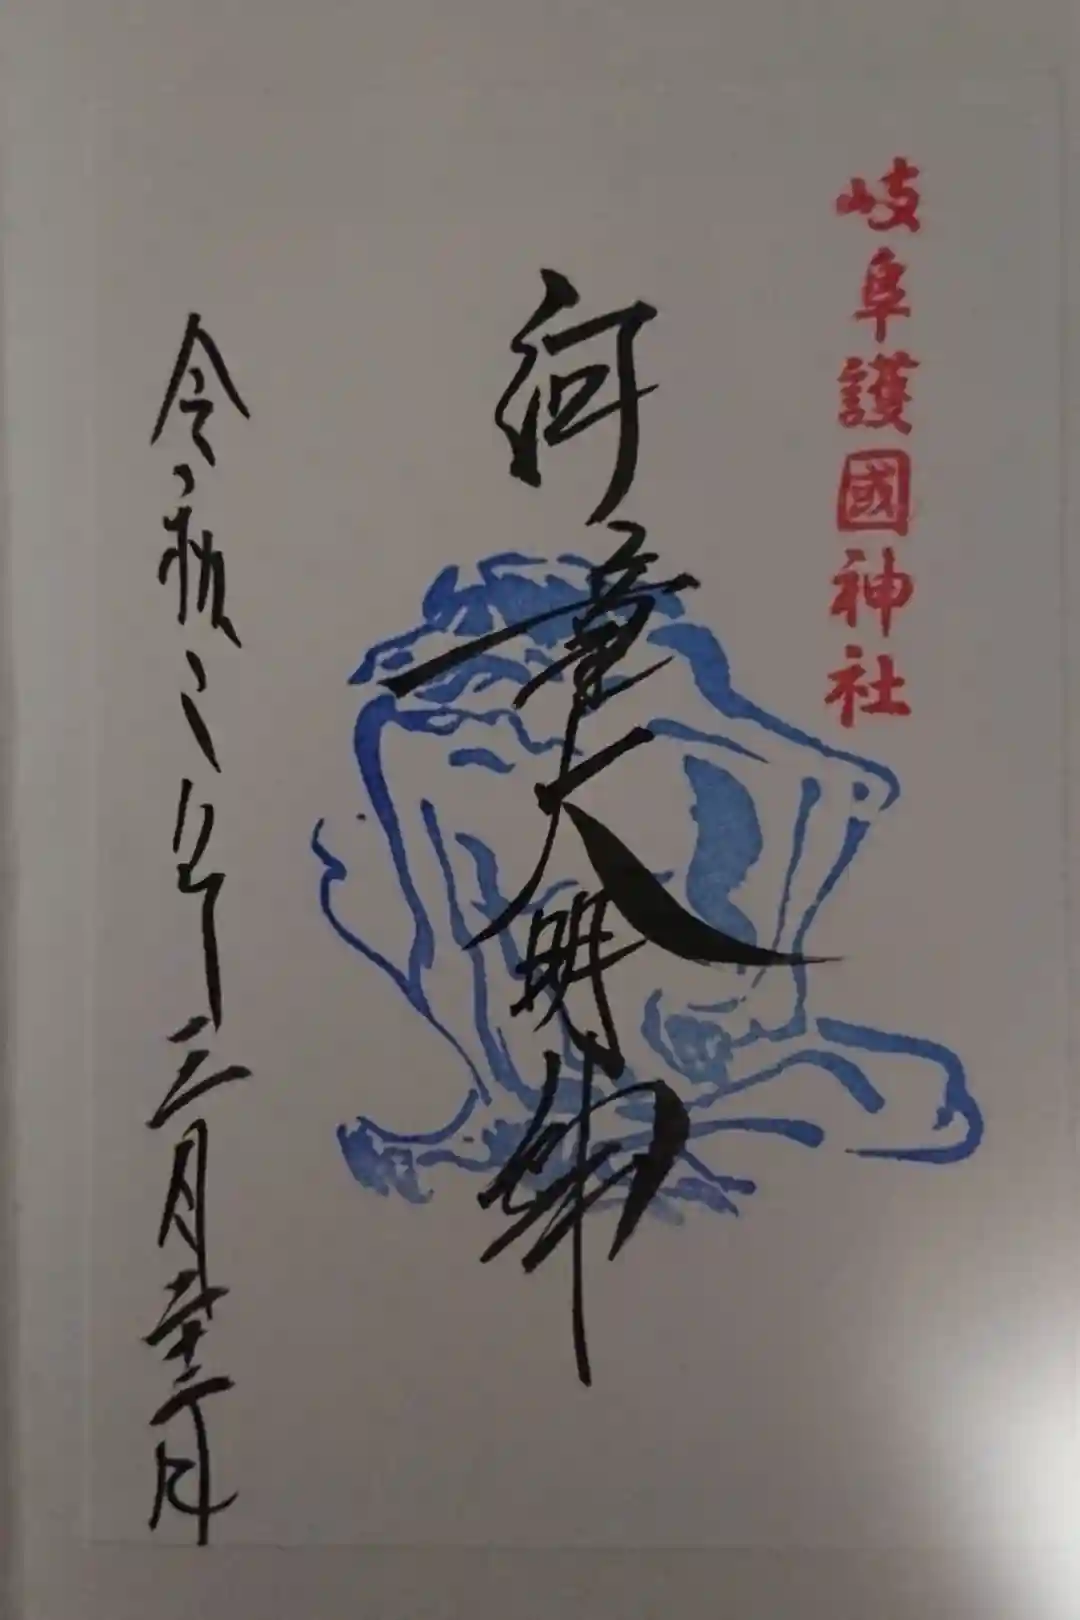 岐阜護國神社
河童大明神
令和二年三月廿二日